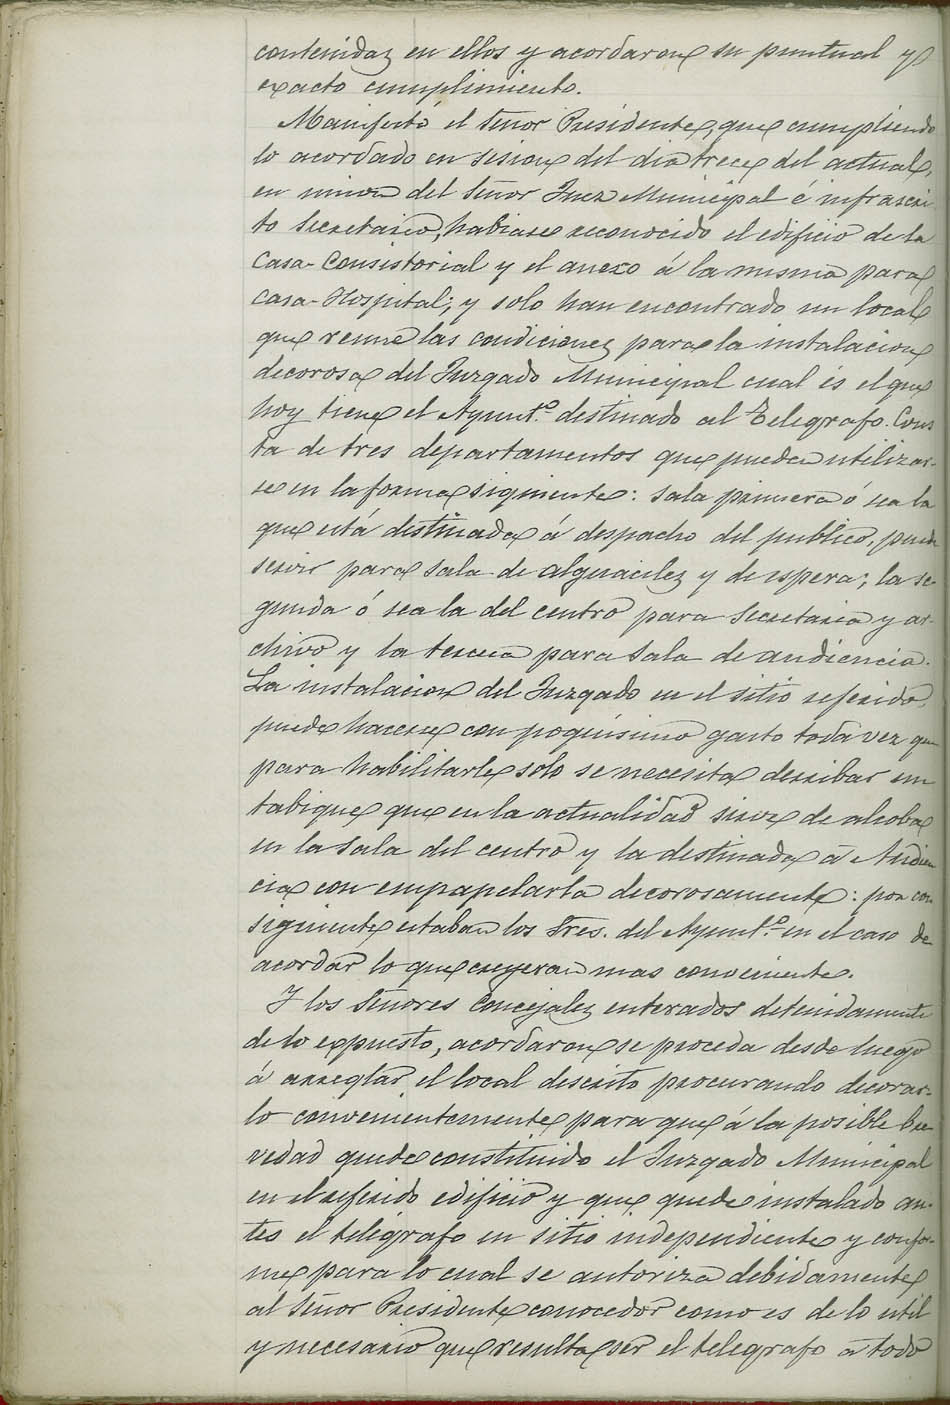 contenidas en ellos y acordaron su puntual y
exacto cumplimiento.
Manifestó el Señor Presidente, que cumpliendo
lo acordado en sesion del dia trece del actual,
en union del Señor Juez Municipal é infrascri
to Secretario, habiase reconocido el edificio de la
Casa-Consistorial y el anexo á la misma para
Casa-Hospital; y solo han encontrado un local
que reune las condiciones para la instalacion
decorosa del Juzgado Municipal cual és el que
hoy tiene el Ayunt.º destinado al Telegrafo. Cons
ta de tres departamentos que pueden utilizar-
se en la forma siguiente: Sala primera ó sea la
que está destinada á despacho del publico, puede
servir para sala de alguaciles y de espera; la se-
gunda ó sea la del centro para Secretaria y ar-
chivo y la tercera para Sala de audiencia.
La instalacion del Juzgado en el sitio referido,
puede hacerse con poquisimo gasto toda vez que
para habilitarle solo se necesita derribar un
tabique que en la actualidad sirve de alcoba
en la Sala del centro y la destinada á Audien
cia con empapelarla decorosamente: por con
siguiente estaban los Sres. del Ayunt.º en el caso de
acordar lo que creyeran mas conveniente.
Y los Señores Concejales enterados detenidamente
de lo expuesto, acordaron se proceda desde luego
á arreglar el local descrito procurando decorar-
lo convenientemente para que á la posible bre-
vedad quede constituido el Juzgado Municipal
en el referido edificio y que quede instalado an-
tes el telégrafo en sitio independiente y confor-
me para lo cual se autoriza debidamente
al Señor Presidente conocedor como es de lo util
y necesario que resulta ser el telegrafo á todo